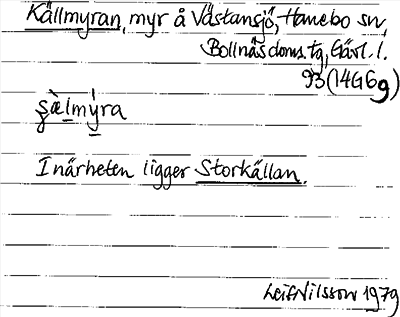 Källmyran, myr å Västansjö, Hanebo sn,
Bollnäs doms. tg, Gävl. l.
93 (14G6g)
şà̀lmýra
I närheten ligger Storkällan.
Leif Nilsson 1979